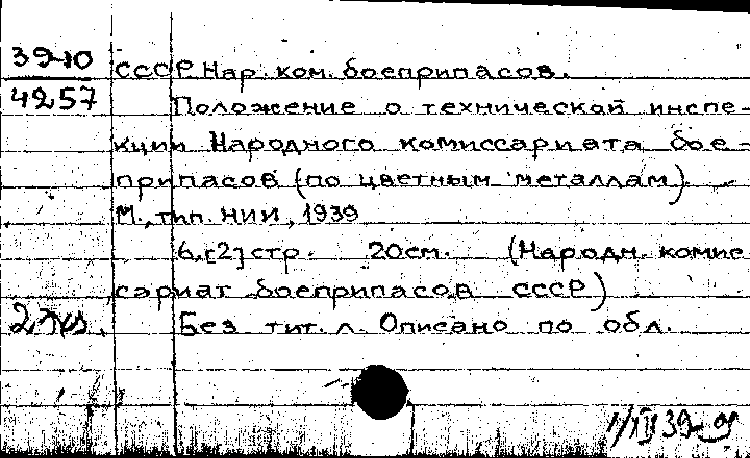 39-10
4257
СССР Нар. ком. боеприпасов.
Положение о технической инспе-
кции Народного комиссариата бое-
припасов (по цветным металлам)
М., тип. НИИ, 1939
6, [2] стр. 20 см. (Народн. комис
сариат боеприпасов СССР)
Без тит. л. Описано по обл.